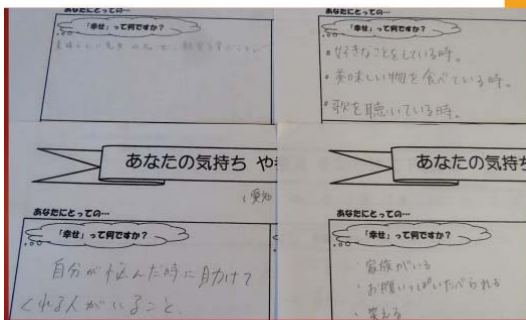 あなたにとっての…
「幸せ」って何ですか？
あなたにとっての…
「幸せ」って何ですか？
・好きなことをしている時。
・美味しい物を食べている時。
・歌を聴いている時。
あなたの気持ち や
(愛知
あなたにとっての…
「幸せ」って何ですか？
自分が悩んだ時に助けて
くれる人がいること。
あなたの気持ち
あなたにとっての…
「幸せ」って何ですか？
・家族がいる
・お腹いっぱいたべられる
・笑える